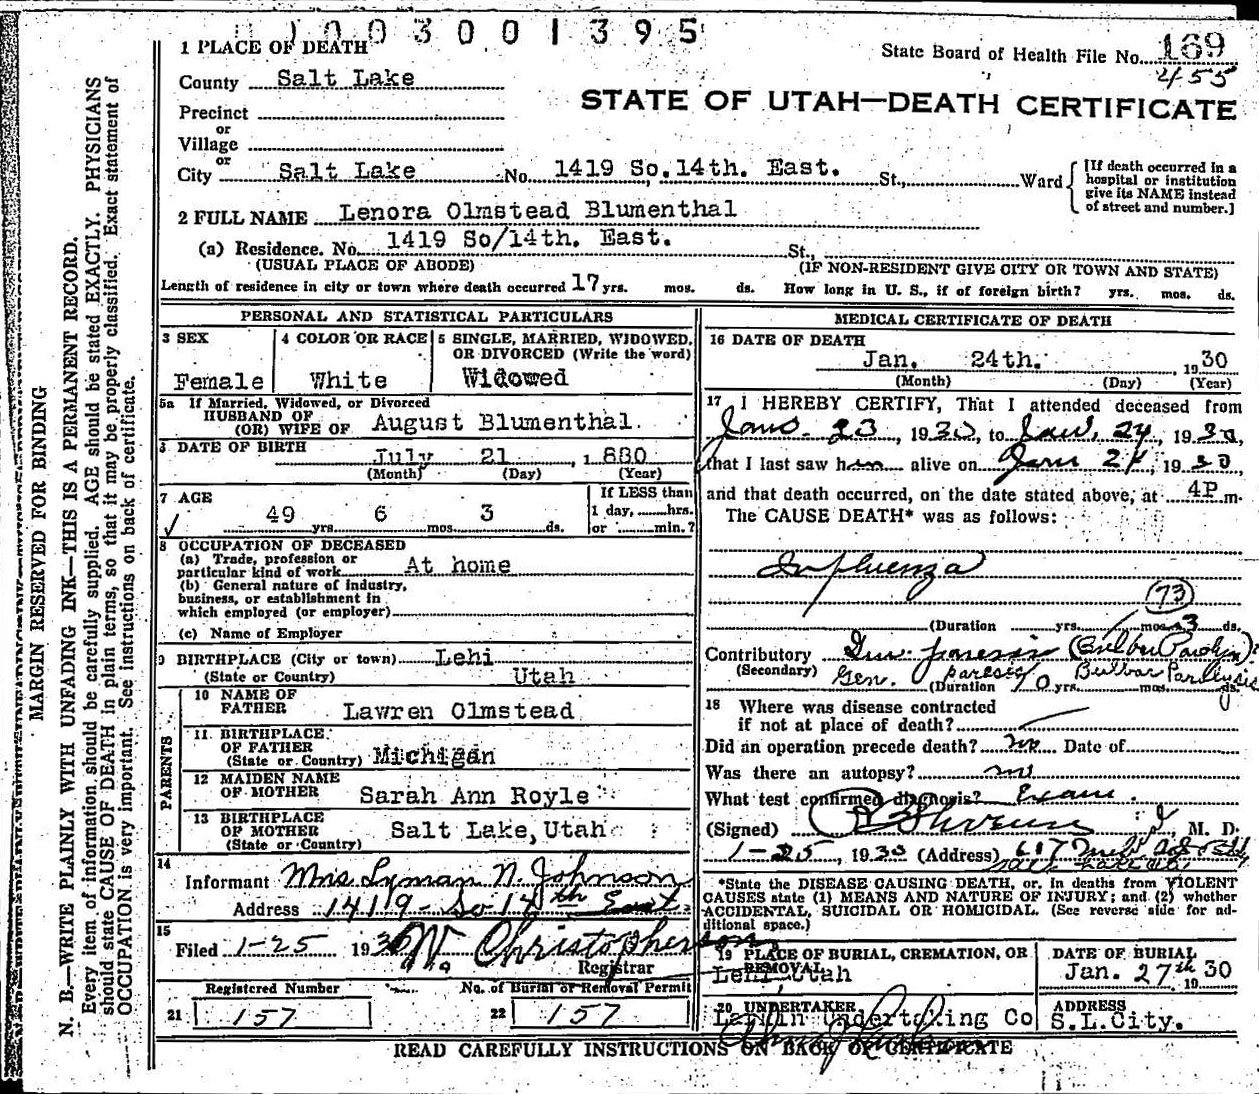 1003001395
1 PLACE OF DEATH
State Board of Health File No. 169
455
County Salt Lake
STATE OF UTAH—DEATH CERTIFICATE
Precinct
or
Village
or
City Salt Lake No. 1419 So. 14th. East. St., Ward
[If death occurred in a hospital or institution give its NAME instead of street and number.]
2 FULL NAME Lenora Olmstead Blumenthal
(a) Residence. No. 1419 So/14th. East. St.,
(USUAL PLACE OF ABODE) (IF NON-RESIDENT GIVE CITY OR TOWN AND STATE)
Length of residence in city or town where death occurred 17 yrs. mos. ds. How long in U. S., if of foreign birth? yrs. mos. ds.
PERSONAL AND STATISTICAL PARTICULARS
3 SEX
Female
4 COLOR OR RACE
White
5 SINGLE, MARRIED, WIDOWED, OR DIVORCED (Write the word)
Widowed
5a If Married, Widowed, or Divorced
HUSBAND OF
(OR) WIFE OF August Blumenthal.
6 DATE OF BIRTH July 21, 1880
(Month) (Day) (Year)
7 AGE
49 yrs. 6 mos. 3 ds.
If LESS than
1 day, hrs.
or min.?
8 OCCUPATION OF DECEASED
(a) Trade, profession or
particular kind of work At home
(b) General nature of industry,
business, or establishment in
which employed (or employer)
(c) Name of Employer
9 BIRTHPLACE (City or town) Lehi
(State or Country) Utah
PARENTS
10 NAME OF
FATHER Lawren Olmstead
11 BIRTHPLACE
OF FATHER
(State or Country) Michigan
12 MAIDEN NAME
OF MOTHER Sarah Ann Royle
13 BIRTHPLACE
OF MOTHER Salt Lake, Utah
(State or Country)
14
Informant Mrs Lyman N. Johnson
Address 1419 - So 14th East.
15
Filed 1-25 1930 W Christopherson
Registrar
Registered Number
No. of Burial or Removal Permit
21 157
22 157
MEDICAL CERTIFICATE OF DEATH
16 DATE OF DEATH
Jan. 24th. , 1930
(Month) (Day) (Year)
17 I HEREBY CERTIFY, That I attended deceased from
Jan. 23, 1930, to Jan. 24, 1930,
that I last saw h alive on Jan 24, 1930
and that death occurred, on the date stated above, at 4P m.
The CAUSE DEATH* was as follows:
Influenza
(73)
(Duration yrs. mos. 3 ds.
Contributory Gen. paresis (Bulbar Paralysis
(Secondary) Gen. paresis Bulbar Paralysis
(Duration 10 yrs. mos. ds.
18 Where was disease contracted
if not at place of death?
Did an operation precede death? no Date of
Was there an autopsy? no
What test confirmed diagnosis? Exam.
(Signed) , M. D.
1-25, 1930 (Address) 617
*State the DISEASE CAUSING DEATH, or, in deaths from VIOLENT
CAUSES state (1) MEANS AND NATURE OF INJURY; and (2) whether
ACCIDENTAL, SUICIDAL OR HOMICIDAL. (See reverse side for ad-
ditional space.)
19 PLACE OF BURIAL, CREMATION, OR
REMOVAL
Lehi Utah
DATE OF BURIAL
Jan. 27th 1930
20 UNDERTAKER
Larkin Undertaking Co
ADDRESS
S.L.City.
READ CAREFULLY INSTRUCTIONS ON BACK OF CERTIFICATE
MARGIN RESERVED FOR BINDING
N. B.—WRITE PLAINLY WITH UNFADING INK—THIS IS A PERMANENT RECORD.
Every item of information should be carefully supplied. AGE should be stated EXACTLY. PHYSICIANS
should state CAUSE OF DEATH in plain terms, so that it may be properly classified. Exact statement of
OCCUPATION is very important. See instructions on back of certificate.